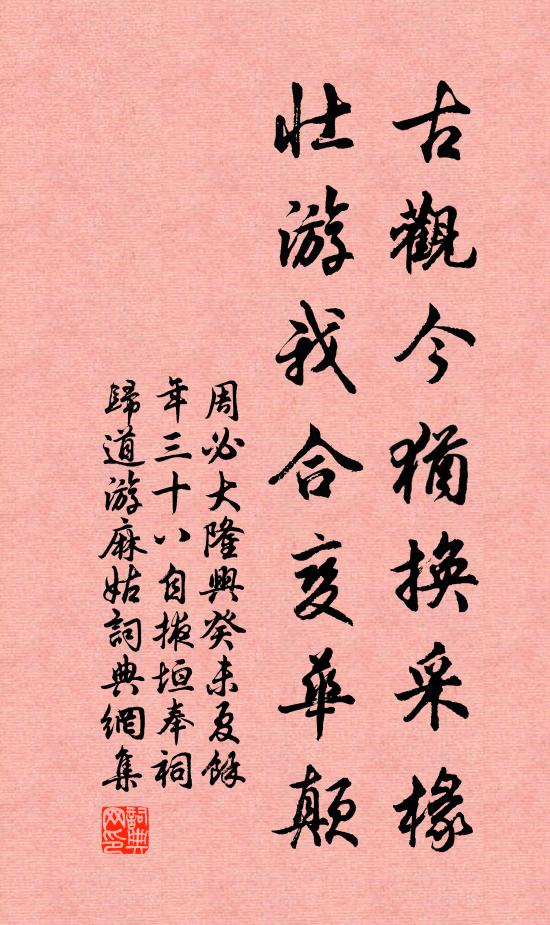 古觀今猶換采椽
壯游我合變華顛
周必大隆興癸未夏餘
年三十八自掖垣奉祠
歸道游麻姑詞典網集
詞典网印